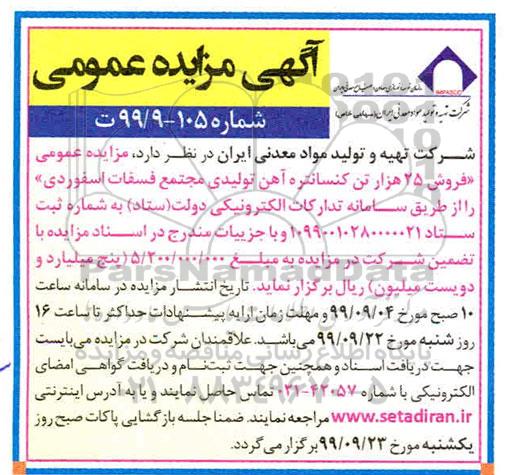 آگهی مزایده عمومی
شماره ۱۰۵-۹۹/۹ ت
شرکت تهیه و تولید مواد معدنی ایران (سهامی خاص)
شرکت تهیه و تولید مواد معدنی ایران در نظر دارد، مزایده عمومی
«فروش ۲۵ هزار تن کنسانتره آهن تولیدی مجتمع فسفات اسفوردی»
را از طریق سامانه تدارکات الکترونیکی دولت (ستاد) به شماره ثبت
ستاد ۱۰۹۹۰۰۱۰۲۸۰۰۰۰۲۱ و با جزییات مندرج در اسناد مزایده با
تضمین شرکت در مزایده به مبلغ ۵/۲۰۰/۰۰۰/۰۰۰ (پنج میلیارد و
دویست میلیون) ریال برگزار نماید. تاریخ انتشار مزایده در سامانه ساعت
۱۰ صبح مورخ ۹۹/۰۹/۰۴ و مهلت زمان ارایه پیشنهادات حداکثر تا ساعت ۱۶
روز شنبه مورخ ۹۹/۰۹/۲۲ می‌باشد. علاقمندان شرکت در مزایده می‌بایست
جهت دریافت اسناد و همچنین جهت ثبت‌نام و دریافت گواهی امضای
الکترونیکی با شماره ۴۲۰۵۷-۰۳۱ تماس حاصل نمایند و یا به آدرس اینترنتی
www.setadiran.ir مراجعه نمایند. ضمنا جلسه بازگشایی پاکات صبح روز
یکشنبه مورخ ۹۹/۰۹/۲۳ برگزار می‌گردد.
ParsNamadData
پایگاه اطلاع رسانی مناقصه و مزایده
۰۲۱-۸۸۳۴۹۶۷۰-۵